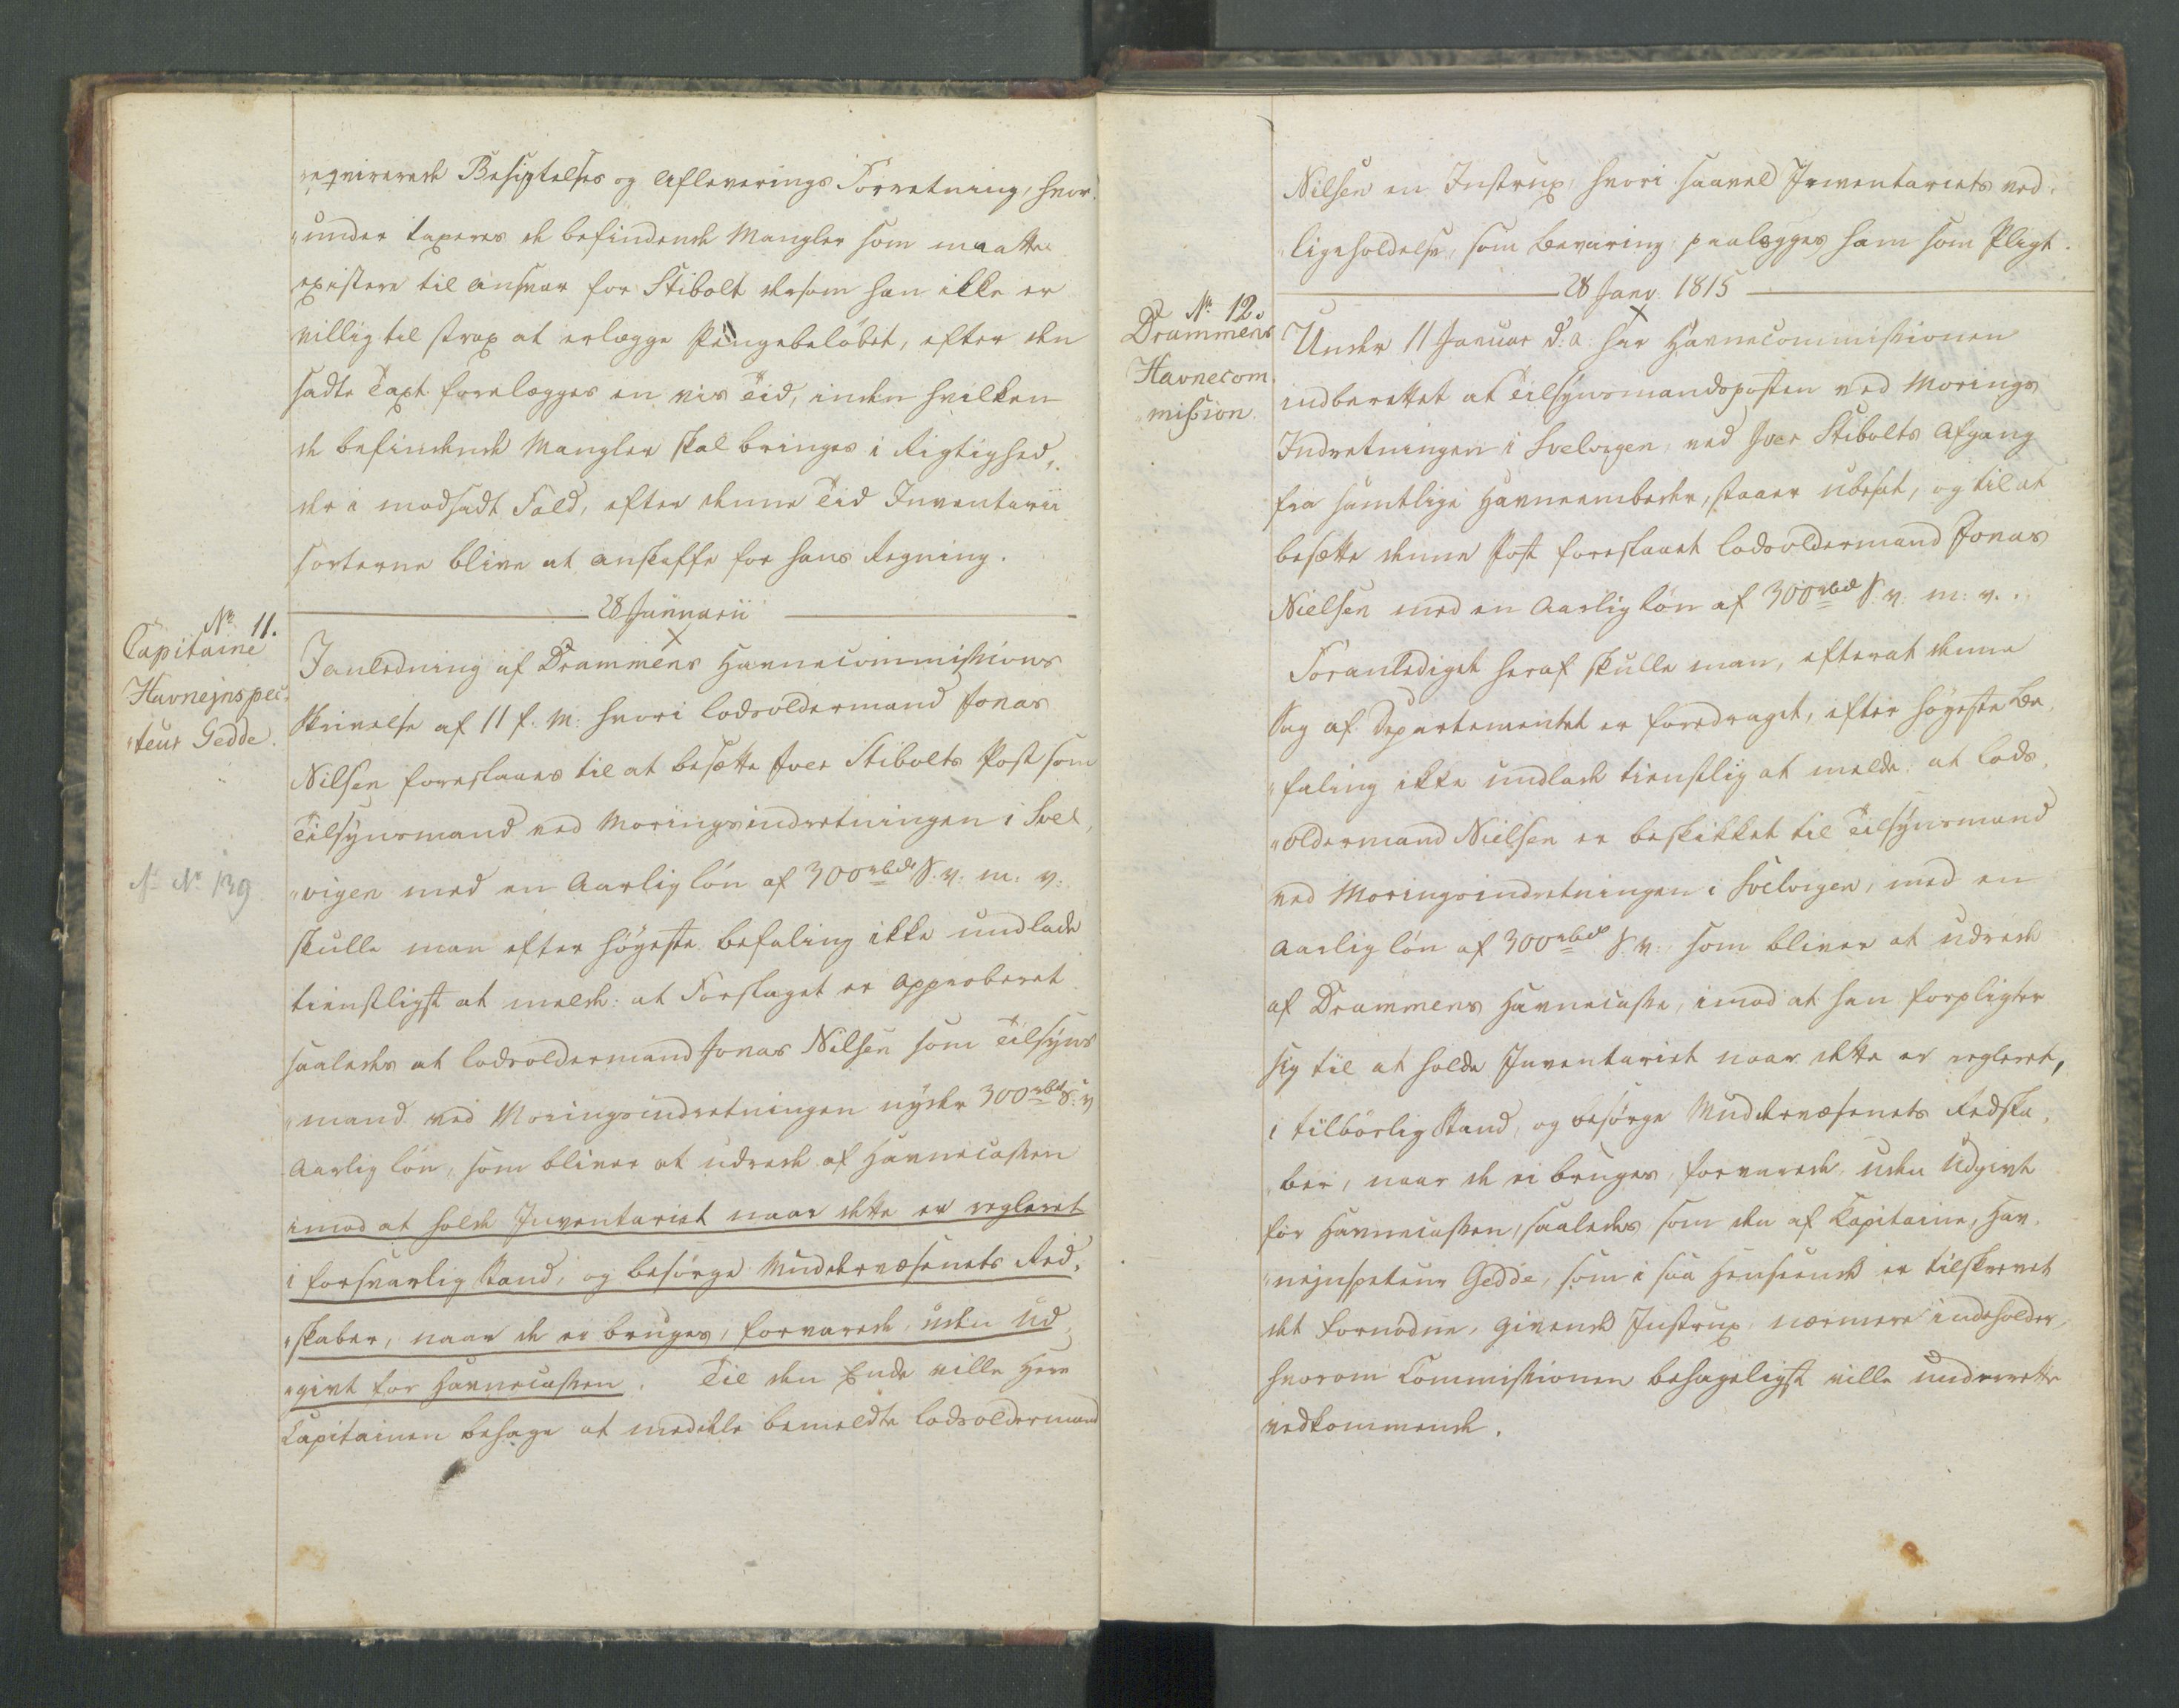 reqvirerede Besigtelses og Afleverings Forretning, hvor-
"under taxeres de befindende Mangler som maatte
existere til Ansvar for Stibolt dersom han ikke er
villig til strax at erlægge Pengebeløbet, efter den
sadte Taxt forelægges en vis Tid, inden hvilken
de befindende Mangler skal bringes i Rigtighed,
der i modsadt Fald, efter denne Tid Inventarii
sorterne blive at anskaffe for hans Regning.
28 Januarii
No 11.
Capitaine
Havneinspec-
"teur Gedde.
No No 139
I anledning af Drammens Havnecommissions
skrivelse af 11 f. M: hvori Lodsoldermand Jonas
Nilsen foreslaaes til at besætte Iver Stibolts Post som
Tilsynsmand ved Moringsindretningen i Svel-
"vigen med en Aarlig løn af 300 rbd S. v. m: v:
skulle man efter høyeste befaling ikke undlade
tienstligst at melde: at Forslaget er Approberet
saaledes at Lodsoldermand Jonas Nilsen som Tilsyns
"mand ved Moringsindretningen nyder 300 rbd S: v
Aarlig løn, som bliver at udrede af Havnecassen
imod at holde Inventariet naar dette er regleret
i forsvarlig Stand, og besørge Mudderværsenets Red-
"skaber, naar de ei bruges, forvarede uden Ud-
"givt for Havnecassen. Til den Ende ville Herr
Capitainen behage at meddele bemeldte Lodsoldermand
Nilsen en Instrux, hvori saavel Inventariets ved-
"ligeholdelse, som bevaring paalægges ham som Pligt.
28 Janv 1815
No 12.
Drammens
Havnecom-
"mission.
Under 11 Januar d: a: har Havnecommissionen
indberettet at Tilsynsmandsposten ved Morings
Indretningen i Svelvigen, ved Iver Stibolts Afgang
fra samtlige Havneembeder, staaer ubesat, og til at
besætte denne Post foreslaaet Lodsoldermand Jonas
Nielsen med en Aarlig løn af 300 rbd S. v. m: v.
Foranlediget heraf skulle man, efterat denne
Sag af Departementet er foredraget, efter høyeste Be-
"faling ikke undlade tienstlig at melde: at Lods-
"oldermand Nielsen er beskikket til Tilsynsmand
ved Moringsindretningen i Svelvigen, med en
Aarlig løn af 300 rbd S. v: som bliver at udrede
af Drammens Havnecasse, imod at han forpligter
sig til at holde Inventariet naar dette er regleret,
i tilbørlig Stand, og besørge Mudderværsenets Redska-
"ber, naar de ei bruges, forvarede uden Udgivt
for Havnecassen, saaledes som den af Capitaine, Hav-
"neinspeteur Gedde, som i saa Henseende er tilskrevet
det fornødne, givende Instrux nærmere indeholder,
hvorom Commissionen behageligst ville underrette
vedkommende.